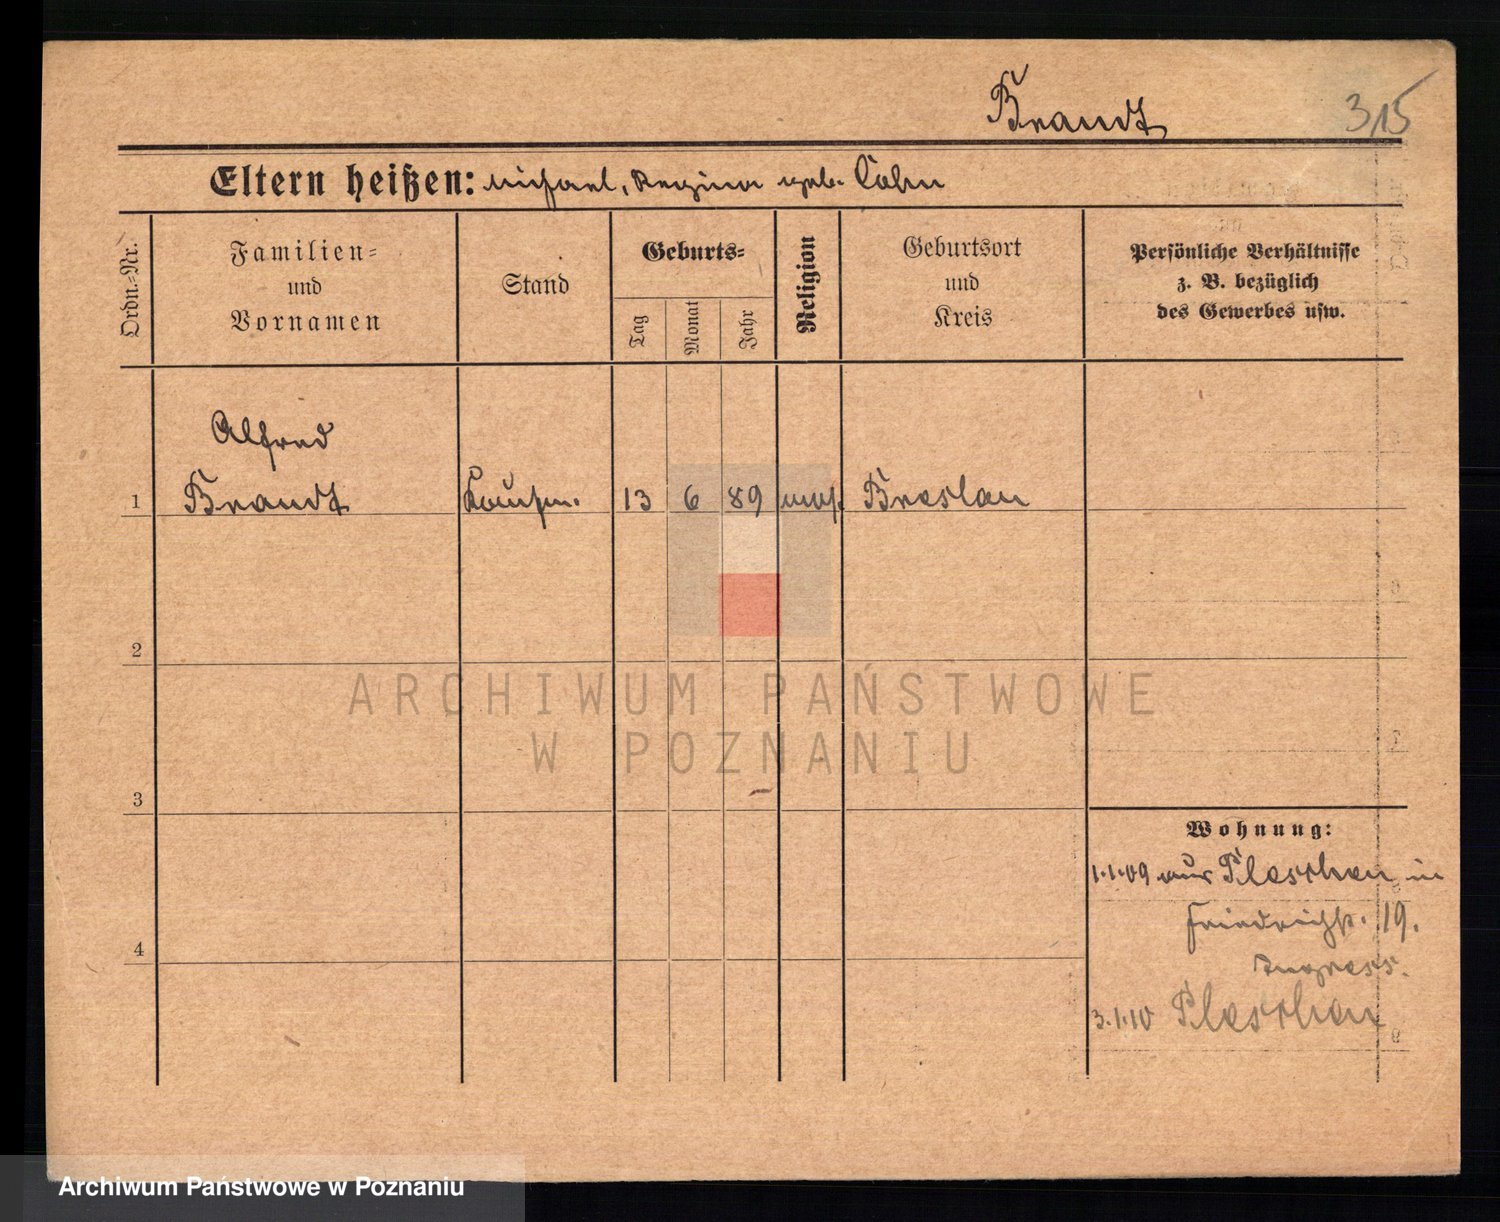 Brandt
315
Eltern heißen: Michael, Regina geb. Cohn
Ordn.-Nr.
Familien-
und
Vornamen
Stand
Geburts-
Tag
Monat
Jahr
Religion
Geburtsort
und
Kreis
Persönliche Verhältnisse
z. B. bezüglich
des Gewerbes usw.
Alfred
1 Brandt Kaufm. 13 6 89 mos. Breslau
2
3
4
Wohnung:
1.1.09 aus Pleschen in
Friedrichst. 19.
3.1.10 Pleschen
ARCHIWUM PAŃSTWOWE
W POZNANIU
Archiwum Państwowe w Poznaniu